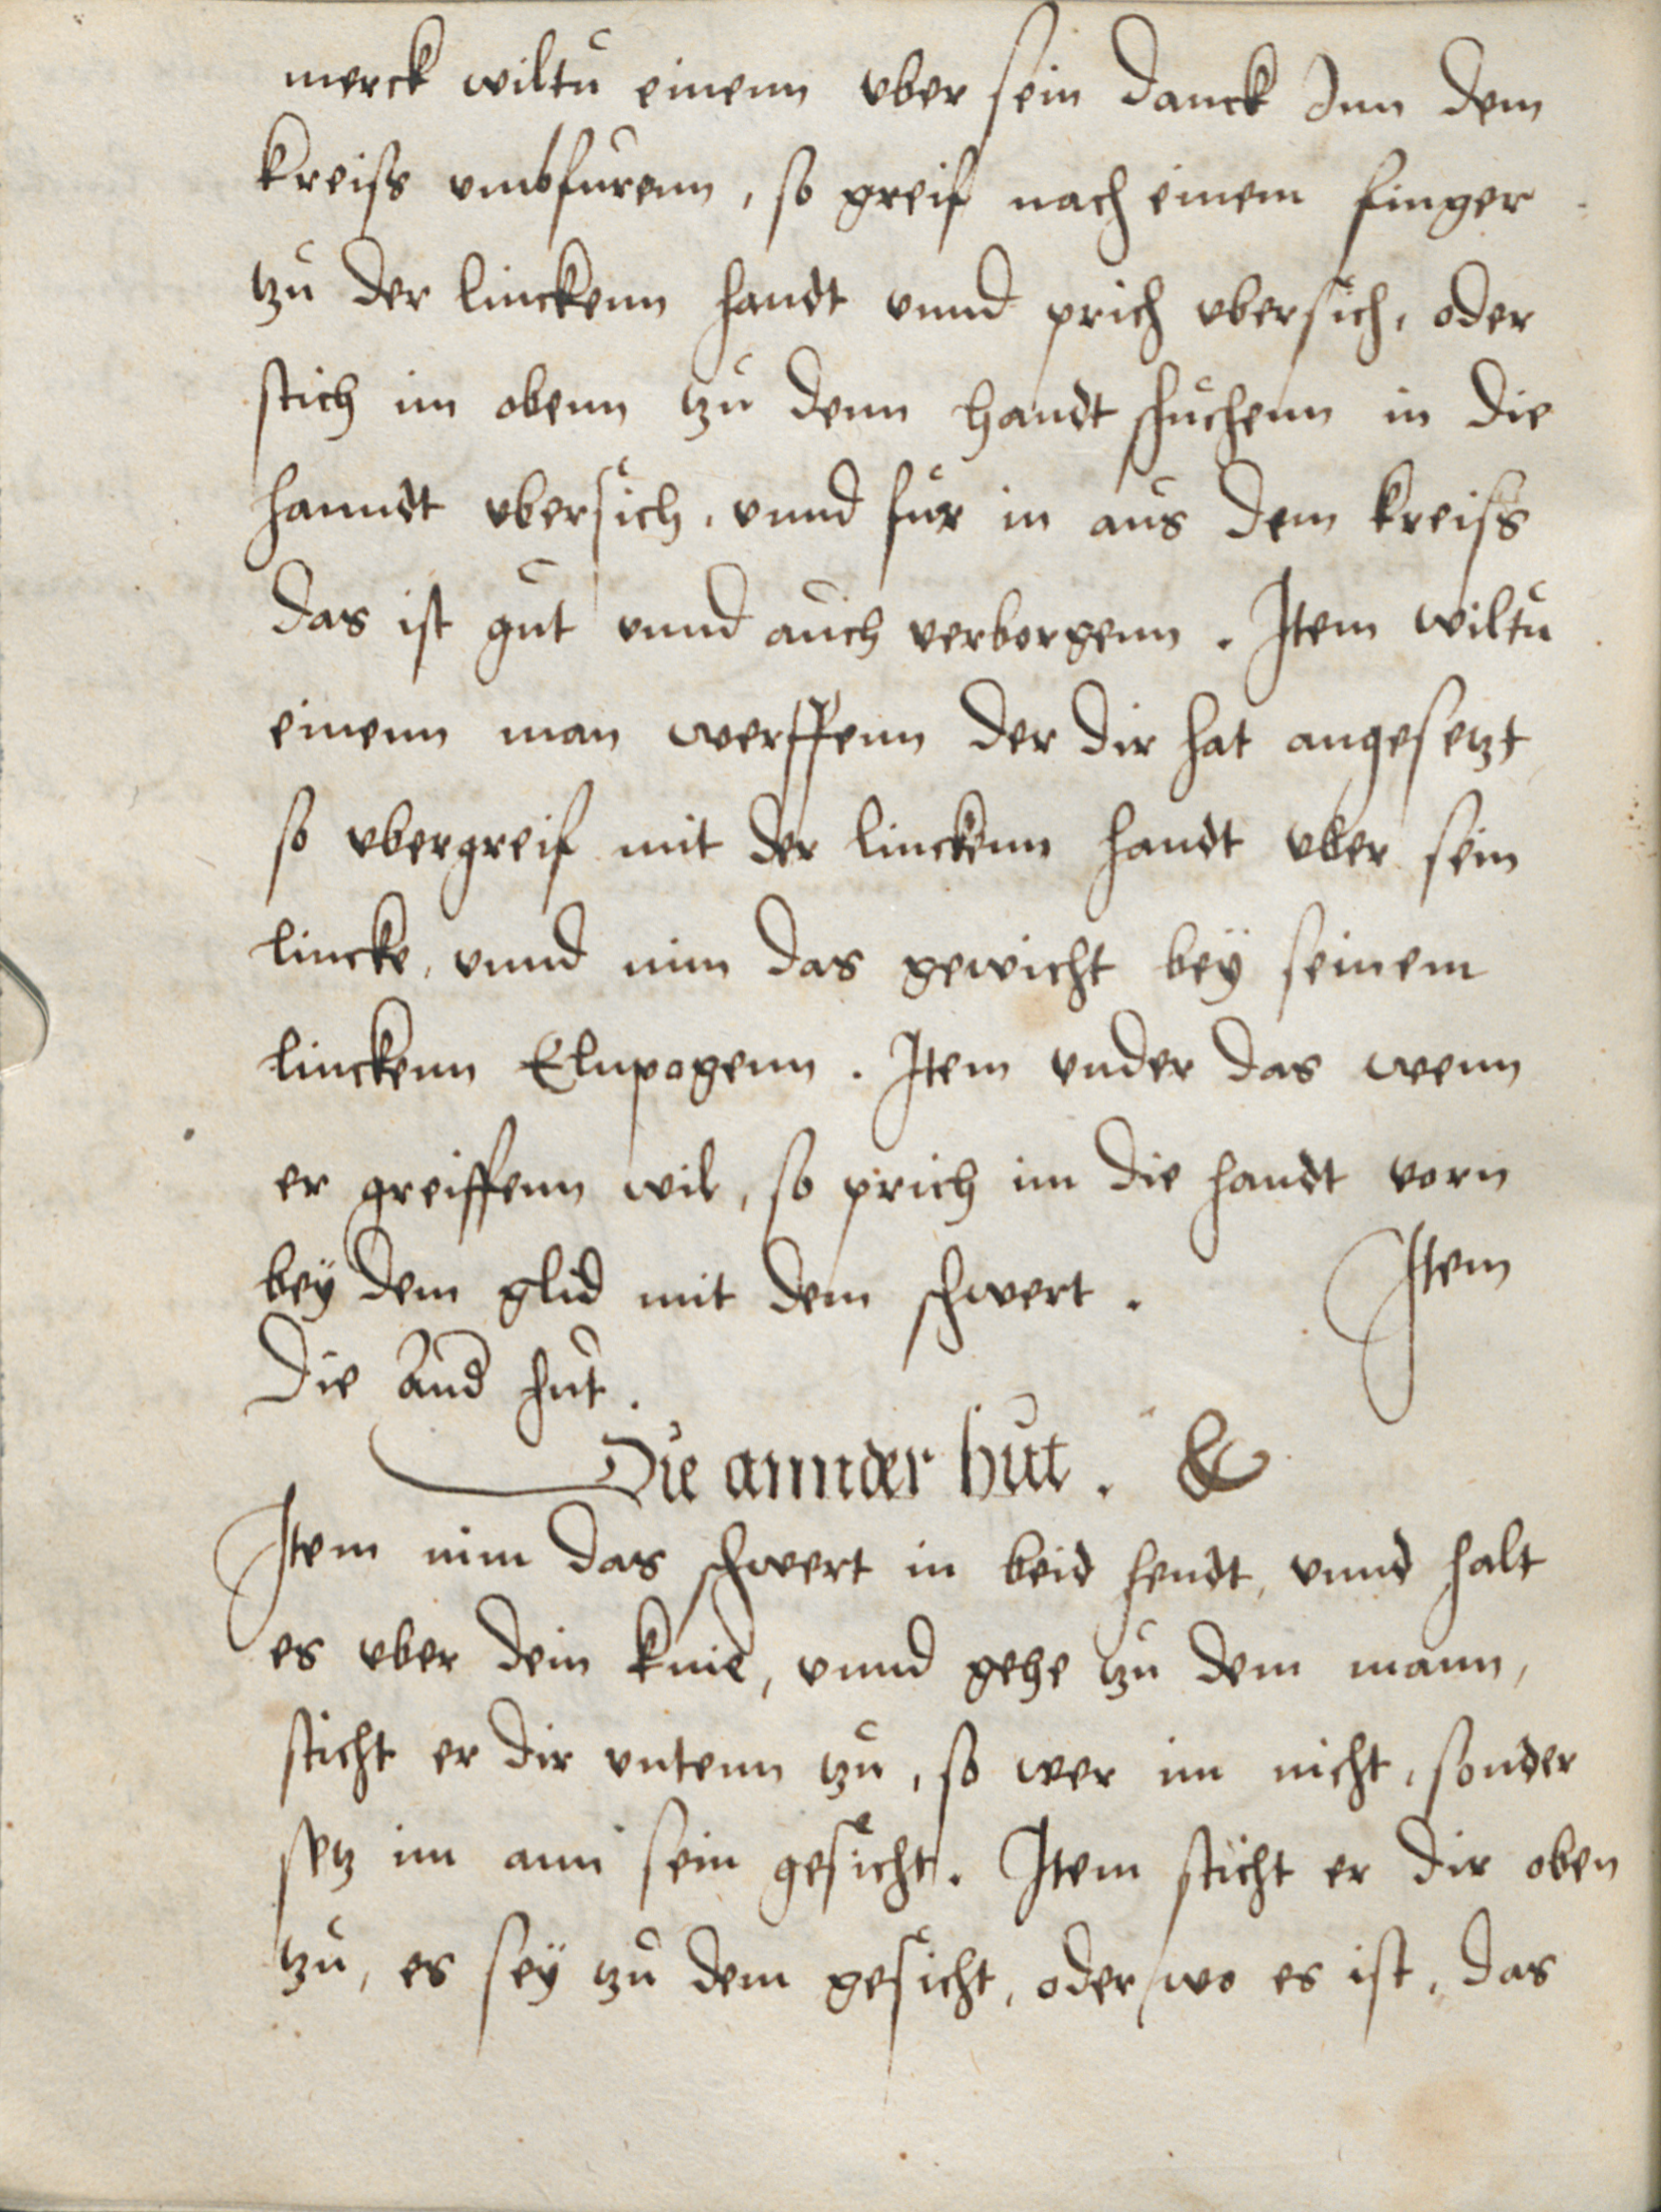 merck wiltu einenn vber sein danck Inn dem
kreiss vmbfurenn, so greif nach einem finger
tzu der linckenn handt vnnd prich vbersich, oder
stich im obenn tzu denn handt schuchenn in die
hanndt vbersich, vnnd fur in aus dem kreiss
das ist gut vnnd auch verborgenn. Item wiltu
einenn man werffenn der dir hat angesetzt
so vbergreif mit der linckenn handt vber sein
lincke, vnnd nim das gewicht bey seinem
linckenn Elnpogenn. Item vnder das wenn
er greiffenn wil, so prich im die handt vorn
bey dem glid mit dem schwert. Item
Die And hut.
Die annder hut. &
Item nim das schwert in beid hendt, vnnd halt
es vber dein knie, vnnd gehe tzu dem mann,
sticht er dir vntenn tzu, so wer im nicht, sonder
setz im ann sein gesicht. Item sticht er dir oben
tzu, es sey tzu dem gesicht, oder wo es ist, das